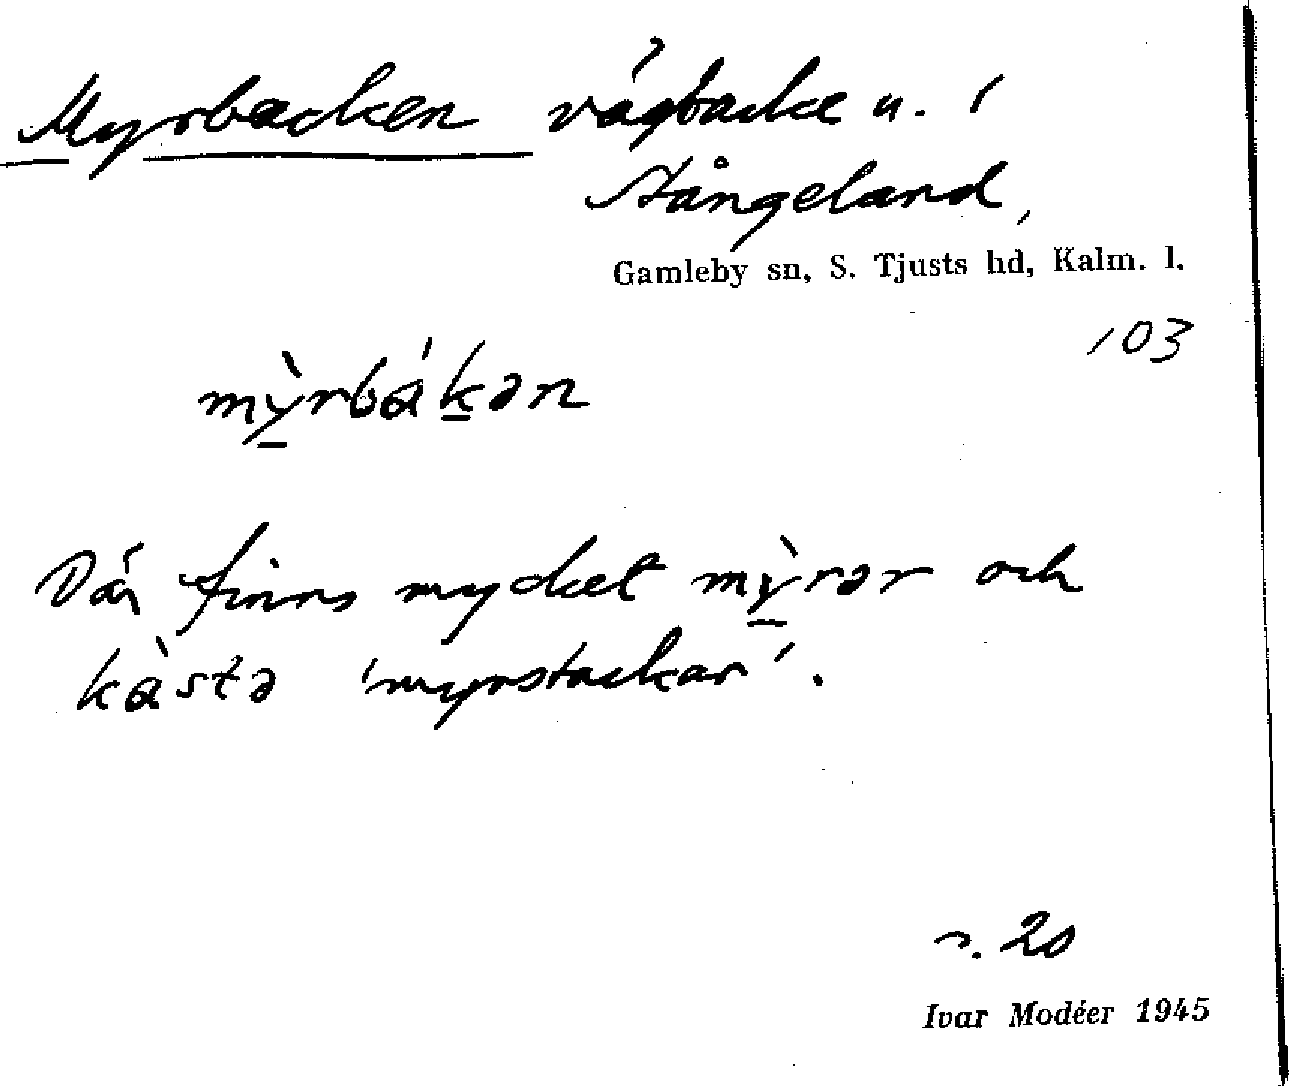 Myrbacken vägbacke n. i
Stångeland,
Gamleby sn, S. Tjusts hd, Kalm. l.
103
mỳ̠rbák̠ən
Där finns mycket mỳ̠rər och
kàstə 'myrstackar'.
s. 20
Ivar Modéer 1945